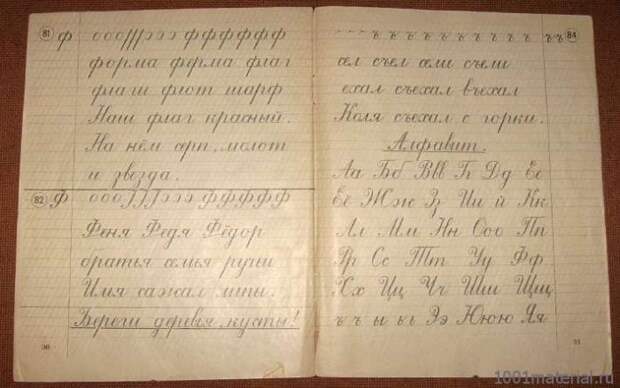 81 ф ооо///эээ фффффф
форма ферма флаг
флаги флот шарф
Наш флаг красный.
На нём серп, молот
и звезда.
82 Ф ооо///эээ ффффф
Феня Федя Фёдор
братья семья ручьи
Имя сажал липы.
Береги деревья, кусты!
30
ъ ъ ъ ъ ъ ъ ъ ъ ъ ъ ъъ 84
сел съел сели съели
ехал съехал въехал
Коля съехал с горки.
Алфавит.
Аа Бб Вв Гг Дд Ее
Ёё Жж Зз Ии й Кк
Лл Мм Нн Оо Пп
Рр Сс Тт Уу Фф
Хх Цц Чч Шш Щщ
ъ ы ь Ээ Юю Яя
31
1001material.ru